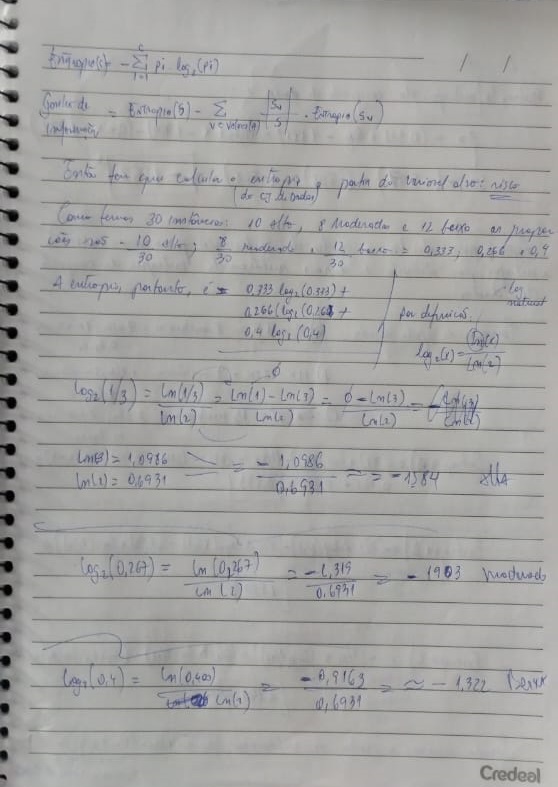 Entropia(S) = -∑ᵢ₌₁ᶜ pi log₂(pi)
/ /
Ganho de informação = Entropia(S) - ∑ |Sv|/|S| . Entropia(Sv)
Então tem que calcular a entropia a partir da variável alvo: risco
(do cj de dados)
Como temos 30 instâncias: 10 alto, 8 moderado e 12 baixo as propor
ções são - 10/30 alto; 8/30 moderado, 12/30 baixo = 0,333, 0,266 e 0,4
A entropia, portanto, é - 0,333 log₂(0,333) +
0,266 log₂(0,266) +
0,4 log₂(0,4)
log natural
por definição:
log₂(x) = ln(x)/ln(2)
0
log₂(1/3) = ln(1/3)/ln(2) = ln(1) - ln(3)/ln(2) = 0 - ln(3)/ln(2) = - ln(3)/ln(2)
ln(3) = 1,0986
ln(2) = 0,6931
= - 1,0986/0,6931 ≈ -1,584
log₂(0,267) = ln(0,267)/ln(2) = -1,319/0,6931 = - 1903 moderado
log₂(0,4) = ln(0,400)/ln(2) = -0,9163/0,6931 = ≈ - 1,322
Credeal